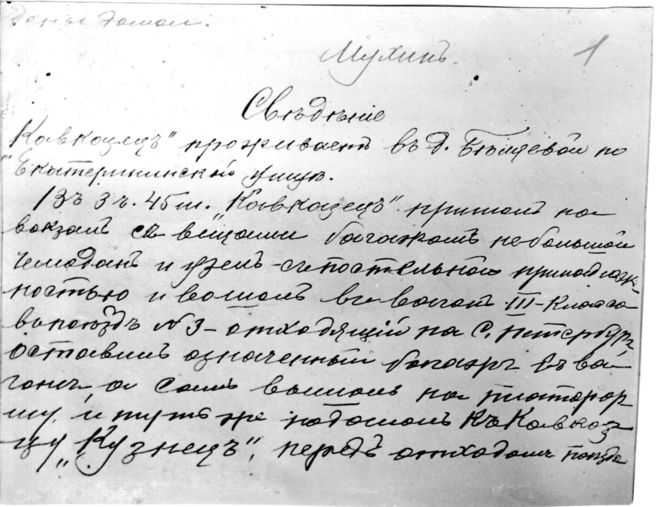 Мухинъ. 1
Свѣдѣніе
Кавказецъ" проживаетъ въ д. по
"Екатерининской улицѣ.
Въ 3 ч. 45 м. Кавказецъ" пришол на
вокзалъ съ вещами багажомъ небольшой
чемоданъ и узелъ с постельной принадлеж-
ностью и вошол въ вагонъ III-класса
в поѣздъ № 3 - отходящій на С. Петербург
оставивъ означенный багажъ въ ва-
гонѣ а самъ вышол на платфор-
му и тутъ же подошол къ Кавказ-
цу „Кузнецъ", передъ отходомъ поѣзда